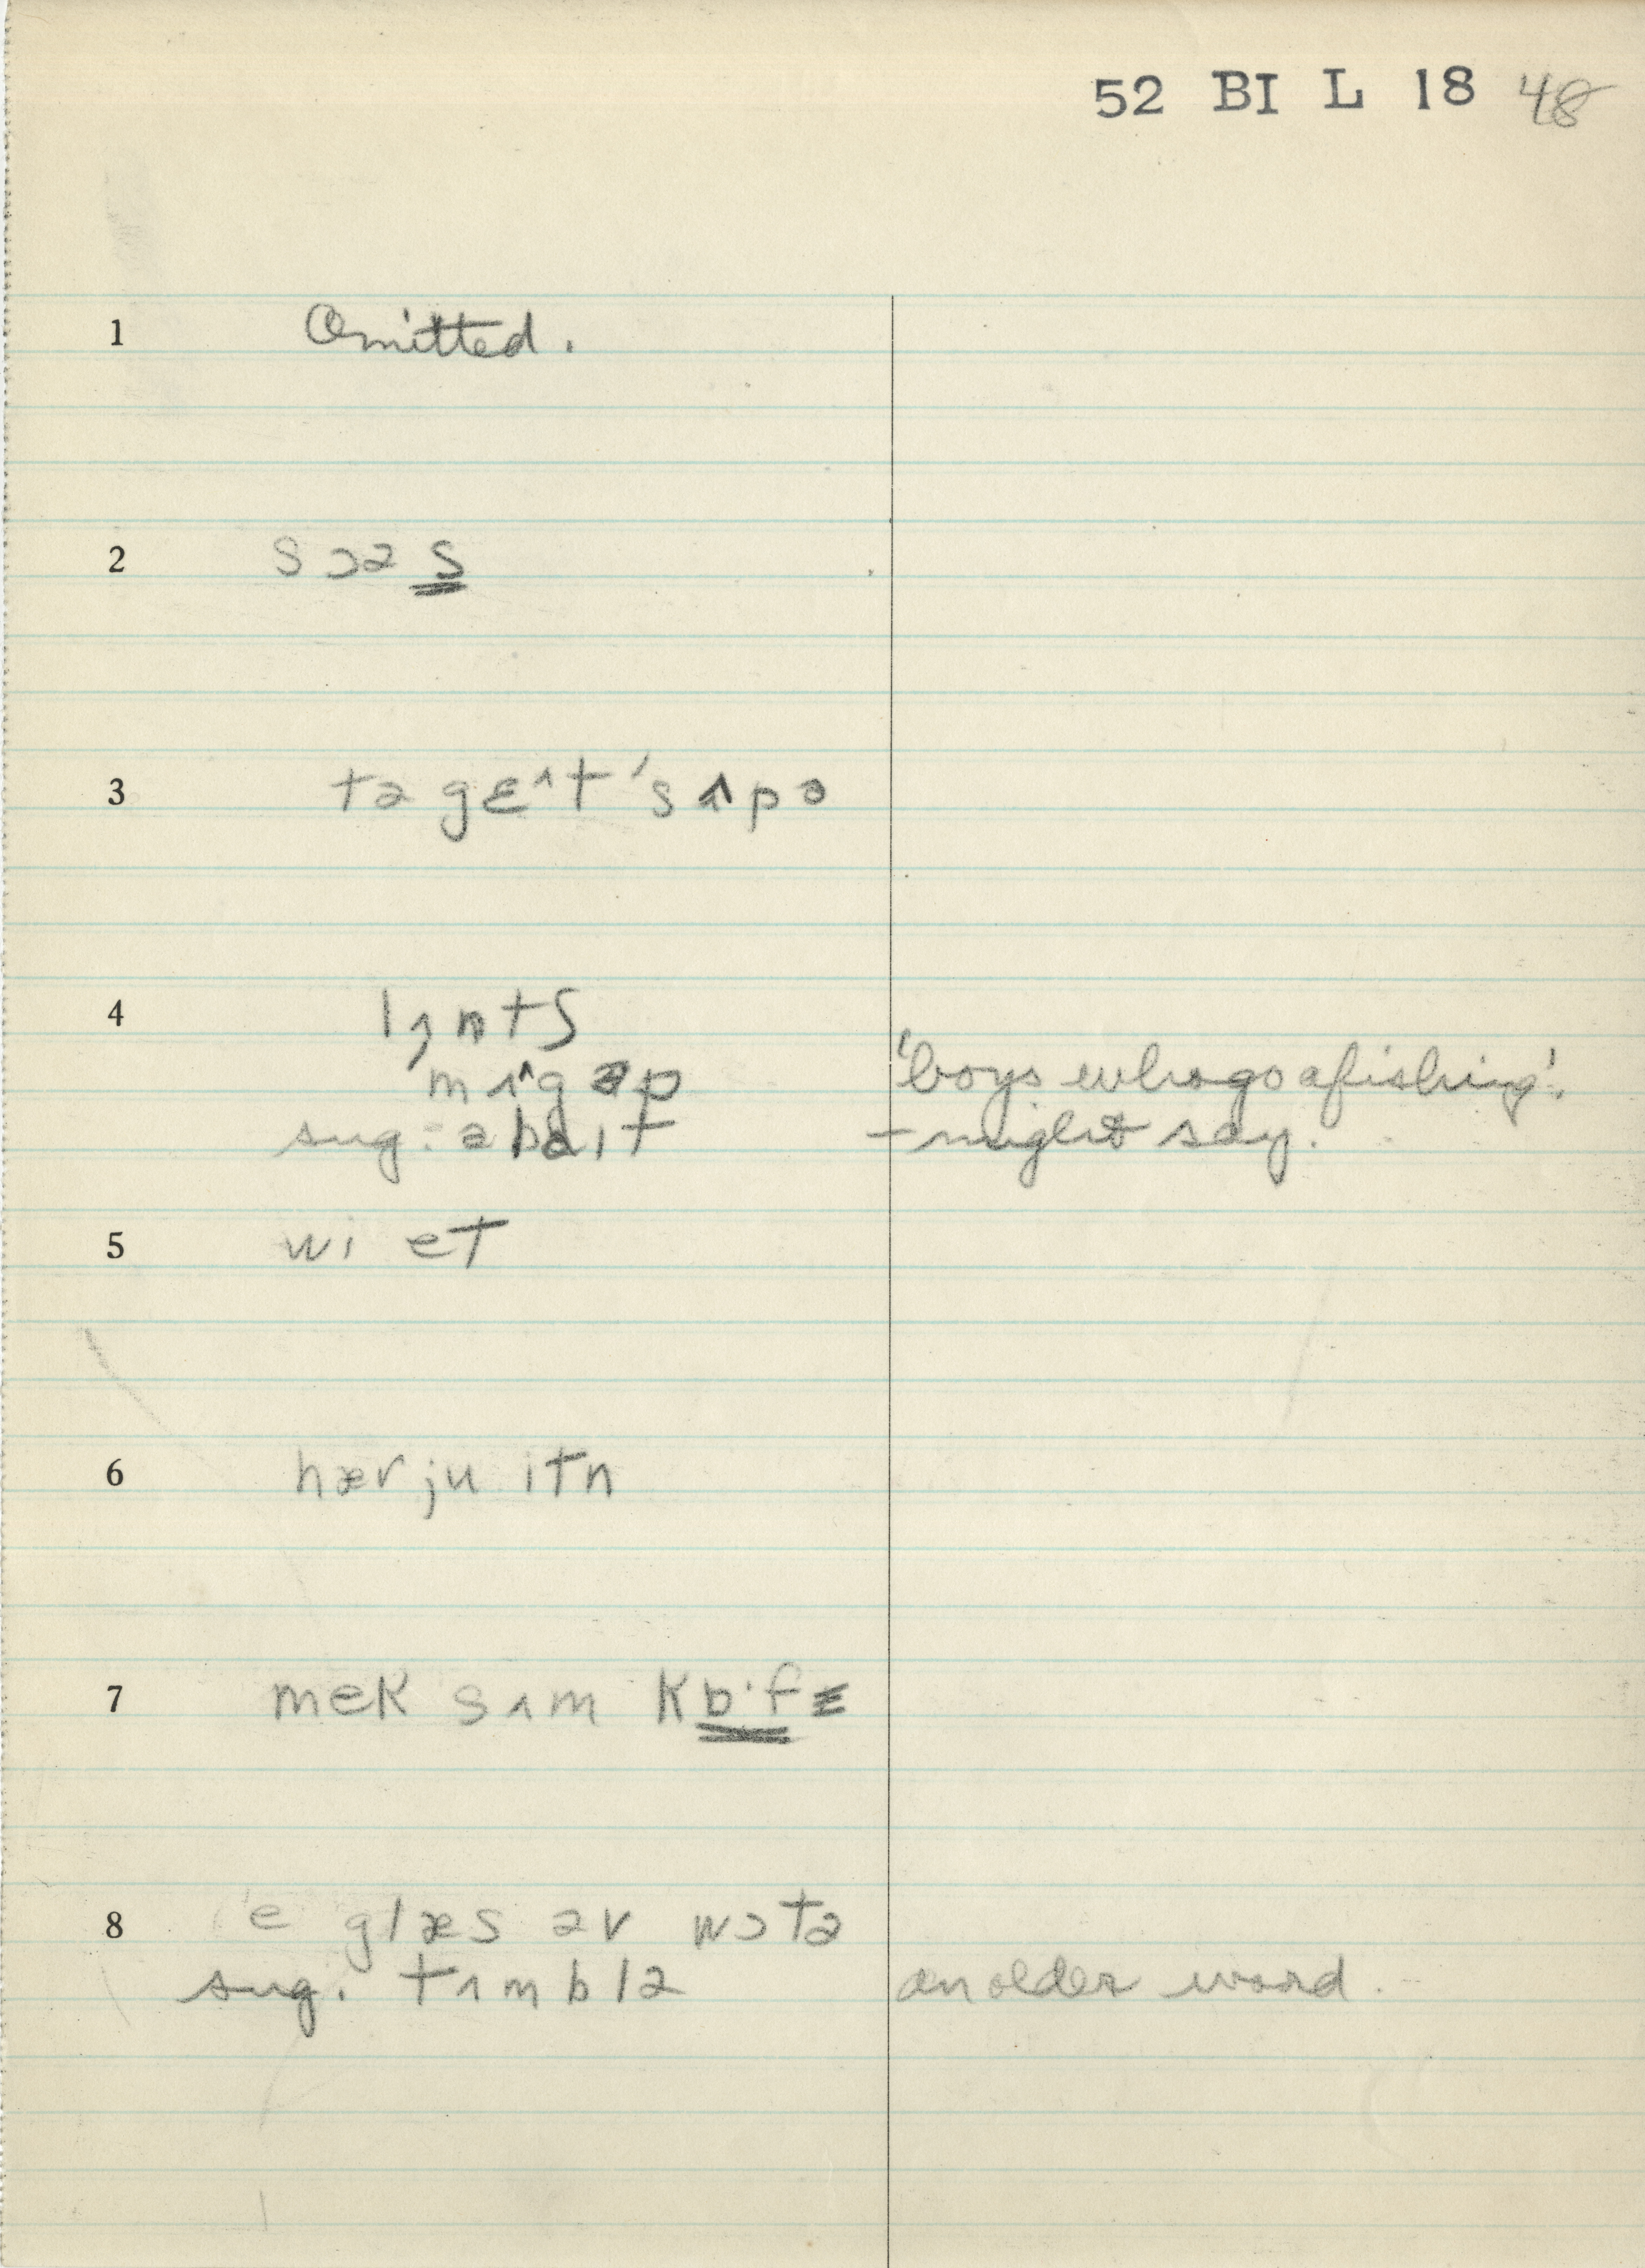 52 BI L 18 48
1 Omitted.
2 sɔəs
3 tə gɛ^t 'sʌpə
4 lʌntʃ
mʌ^gəp 'boys who go afishing'.
sug: ə baɪt – might say.
5 wi et
6 hæv ju itn
7 mek sʌm kɒ·fɛ
8 e glæs əv wɔtə
sug. tʌmblə an older word.